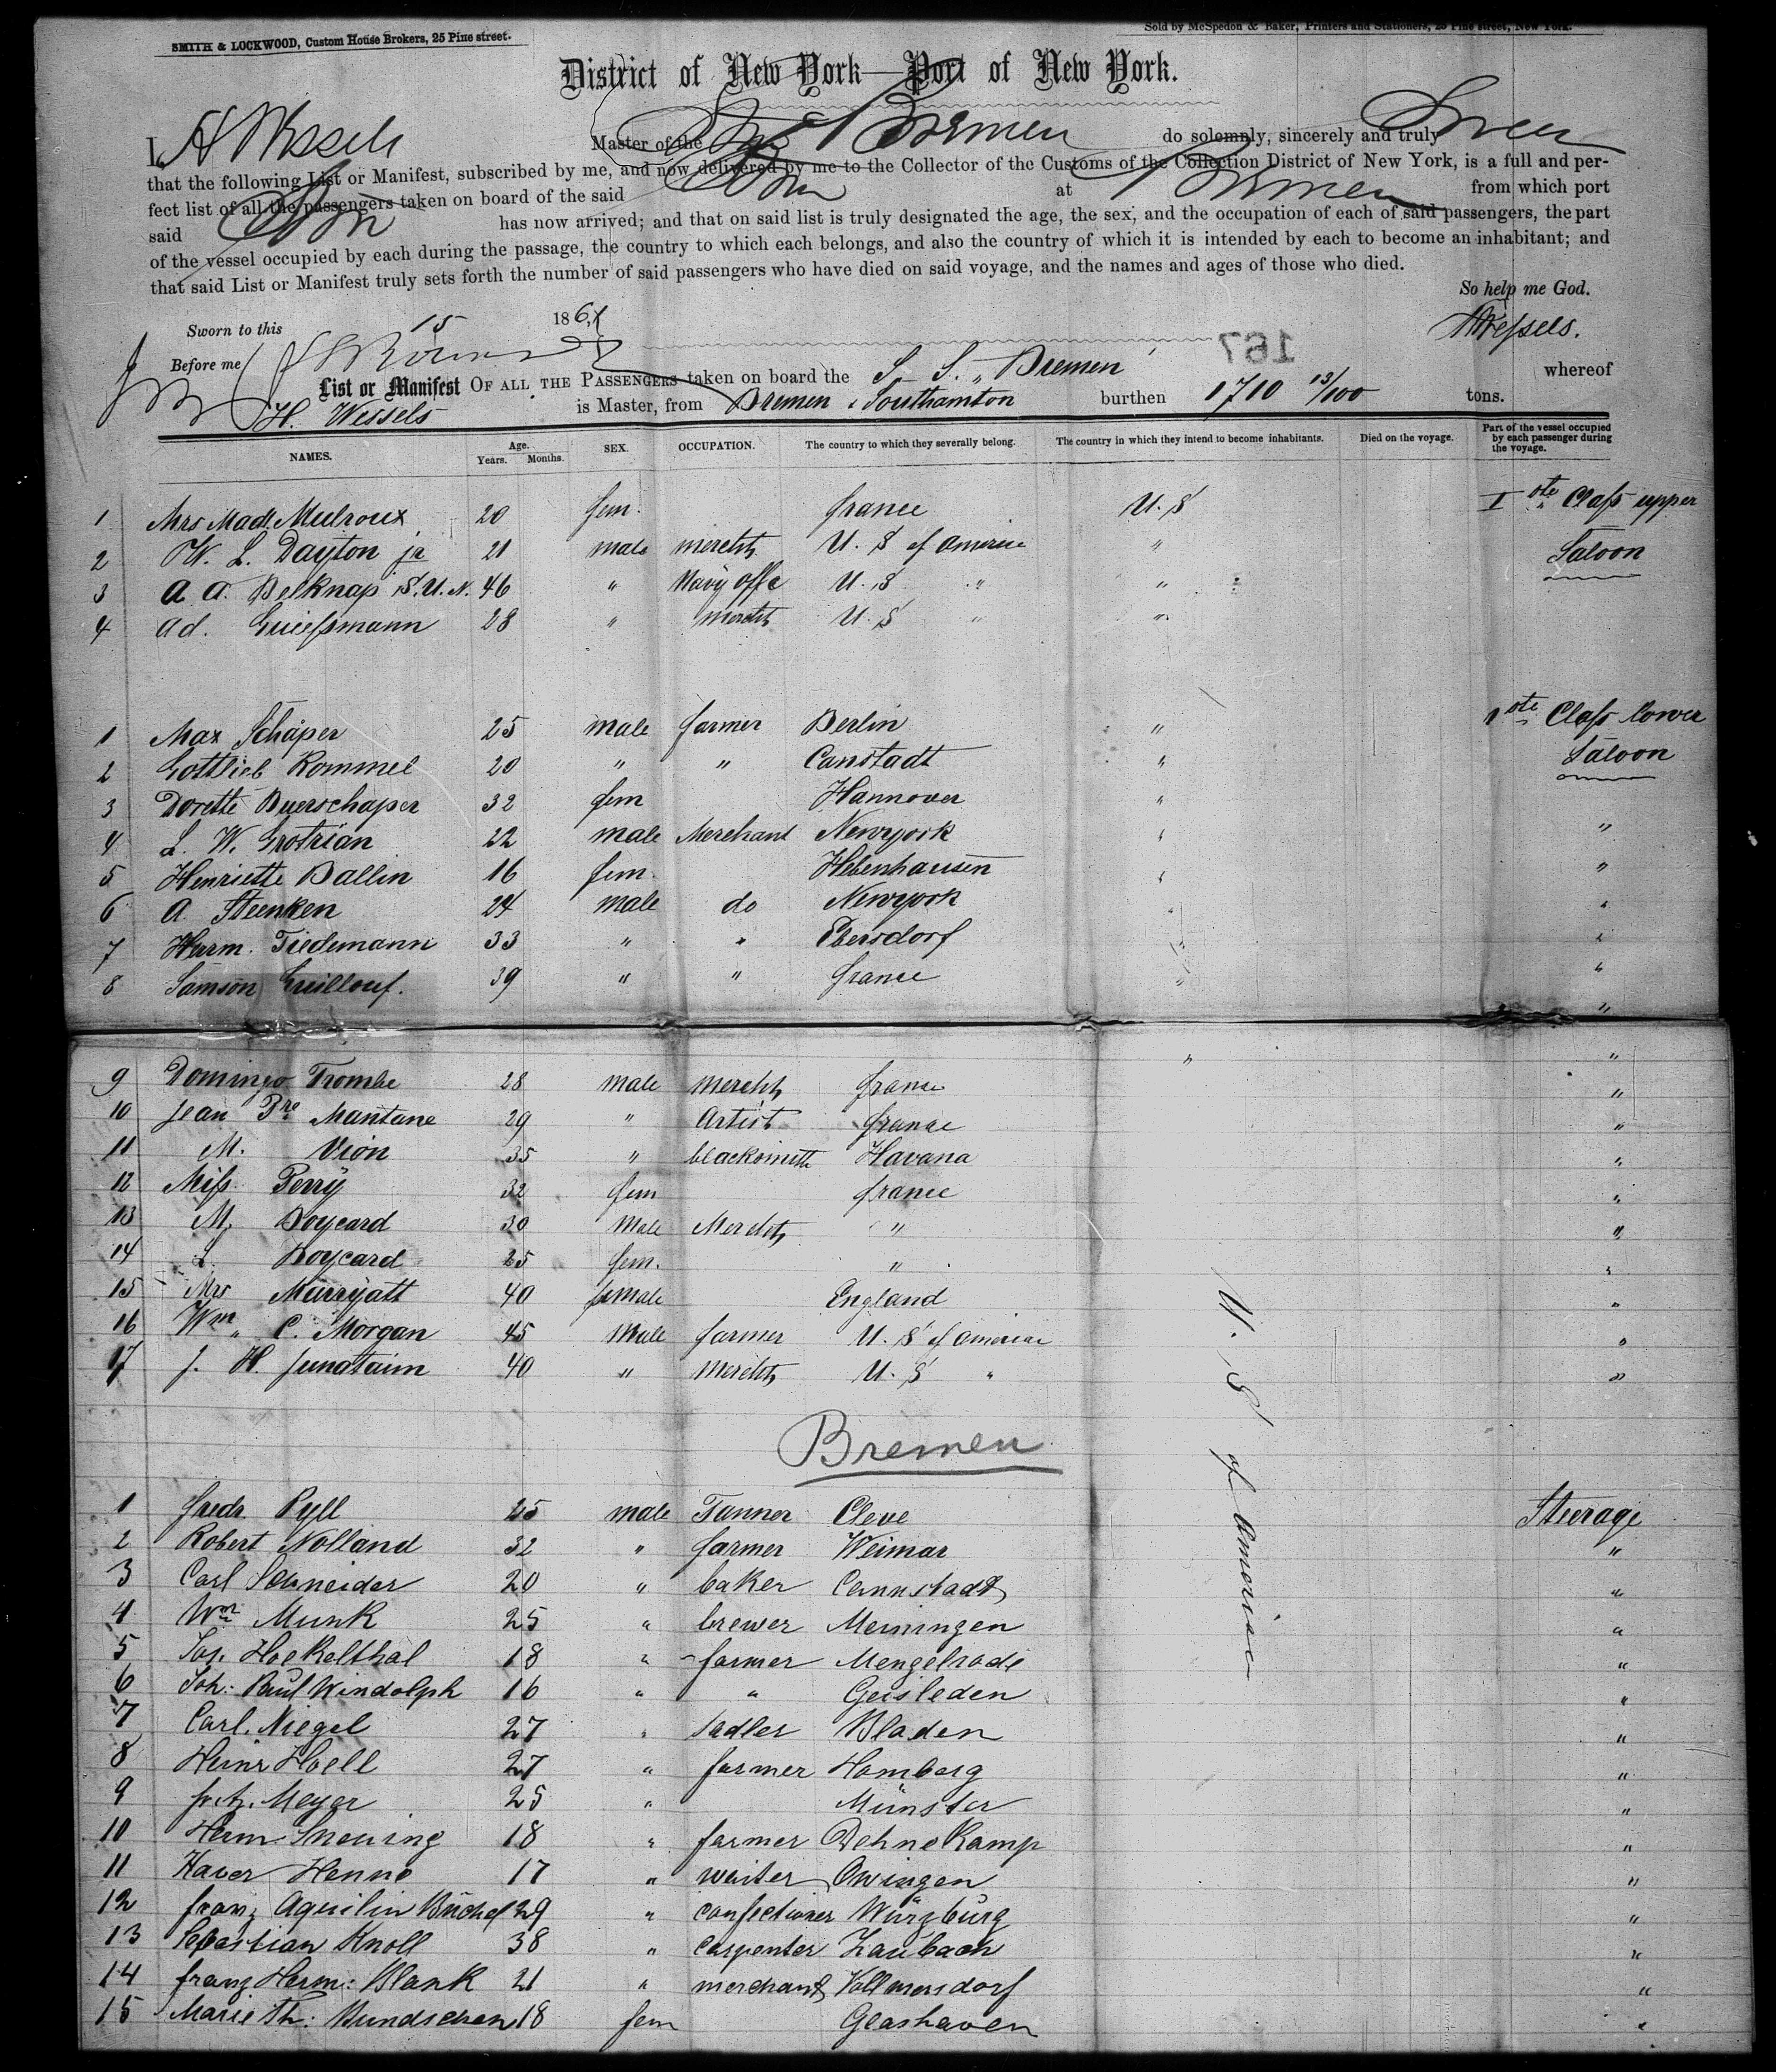 SMITH & LOCKWOOD, Custom House Brokers, 25 Pine street.
Sold by McSpedon & Baker, Printers and Stationers, 25 Pine street, New York.
District of New York—Port of New York.
I, H Wessels Master of the Bremen do solemnly, sincerely and truly Swear
that the following List or Manifest, subscribed by me, and now delivered by me to the Collector of the Customs of the Collection District of New York, is a full and per-
fect list of all the passengers taken on board of the said at Bremen from which port
said has now arrived; and that on said list is truly designated the age, the sex, and the occupation of each of said passengers, the part
of the vessel occupied by each during the passage, the country to which each belongs, and also the country of which it is intended by each to become an inhabitant; and
that said List or Manifest truly sets forth the number of said passengers who have died on said voyage, and the names and ages of those who died.
So help me God.
Sworn to this 15 186
HWessels.
Before me
167
List or Manifest OF ALL THE PASSENGERS taken on board the S. S. „ Bremen whereof
H. Wessels is Master, from Bremen & Southamton burthen 1710 13/100 tons.
NAMES. Age. Years. Months. SEX. OCCUPATION. The country to which they severally belong. The country in which they intend to become inhabitants. Died on the voyage. Part of the vessel occupied by each passenger during the voyage.
1 Mrs Mad. Mulroux 20 fem. france U. S I ste Class upper
2 W. L. Dayton jr 21 male merchts U. S of America " Saloon
3 A A. Belknap S. U. N. 46 " Navy offc U. S " "
4 Ad. Guiessmann 28 " merchts U. S " "
1 Max Schäper 25 male farmer Berlin " 1 ste Class lower
2 Gottlieb Rommel 20 " " Canstadt " Saloon
3 Dorette Buerschaper 32 fem Hannover "
4 L. W. Grotrian 22 male Merchant Newyork " "
5 Henriette Ballin 16 fem. Hebenhausen " "
6 A. Steenken 24 male do Newyork " "
7 Herm. Tiedemann 33 " " Ebersdorf " "
8 Samson Guillouf. 39 " " france " "
"
9 Domingo Trombe 28 male merchts france " "
10 Jean Bre Mantane 29 " Artist france "
11 M. Vion 35 " blacksmith Havana "
12 Miss Perry 32 fem france "
13 M. Boycard 30 Male Merchts " "
14 L. Boycard 25 fem. " "
15 Mrs Marryatt 40 female England "
16 Wm „ C. Morgan 45 Male farmer U. S of America "
17 J. H. 40 " Merchts U. S " "
Bremen
U. S of America
1 Fredr. Pyll 25 male Tanner Cleve Steerage
2 Robert Nolland 32 " farmer Weimar "
3 Carl Schneider 20 " baker Cannstadt "
4 Wm Munk 25 " brewer Meiningen "
5 Jos. Hockelthal 18 " farmer Mengelrode "
6 Joh: Paul Windolph 16 " " Geisleden "
7 Carl. Niegel 27 " sadler Bladen "
8 Heinr Hoell 27 " farmer Homberg "
9 Meyer 25 " Münster "
10 Herm 18 " farmer Dehnekamp "
11 Xaver Henne 17 " waiter Owingen "
12 Franz Aquilin Büchel 29 " confectioner Würzburg "
13 Sebastian Knoll 38 " carpenter Zaubach "
14 Franz Herm: Blank 21 " merchant Vollmersdorf "
15 Marie Th: Kundschen 18 fem Geashaven "